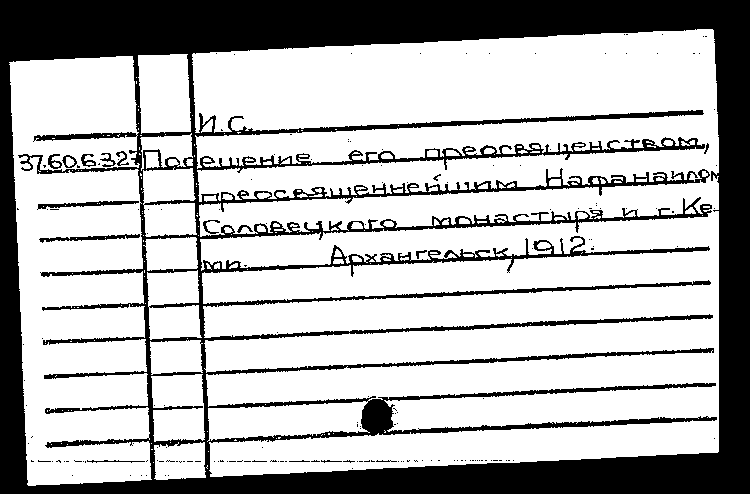 И.С.
37.60.6.327 Посещение его преосвященством,
преосвященнейшим Нафанаилом
Соловецкого монастыря и г. Ке-
ми. Архангельск, 1912.